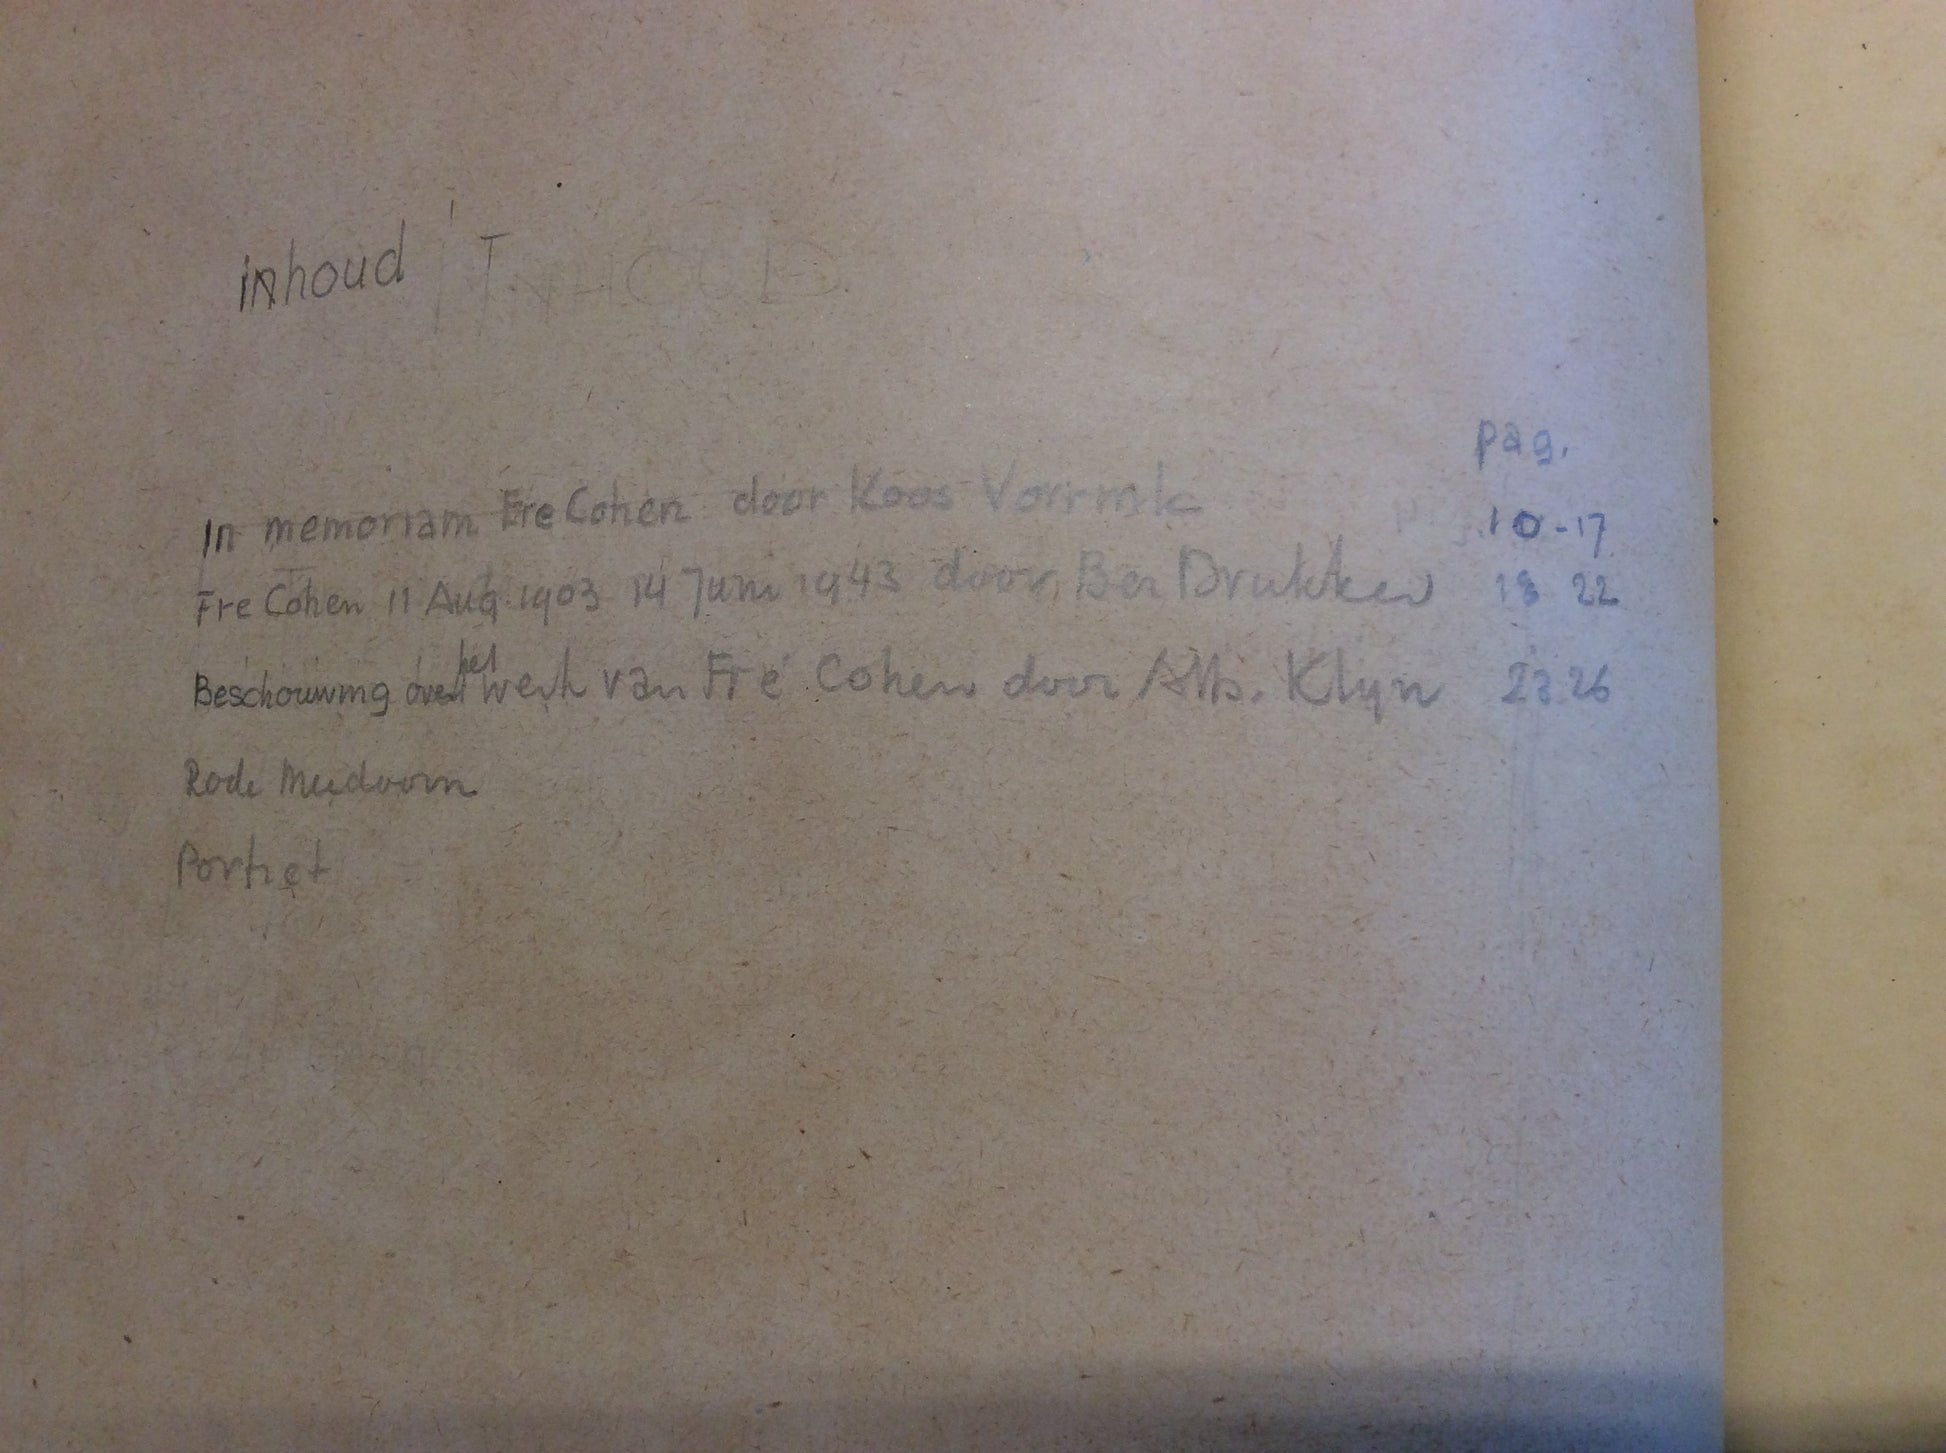 inhoud INHOUD.
pag.
In memoriam Fre Cohen door Koos Vorrink 10-17
Fre Cohen 11 Aug. 1903 14 Juni 1943 door Ben Drukker 18 22
Beschouwing over het werk van Fré Cohen door Alb. Klijn 23 26
Rode Meidoorn
Portret